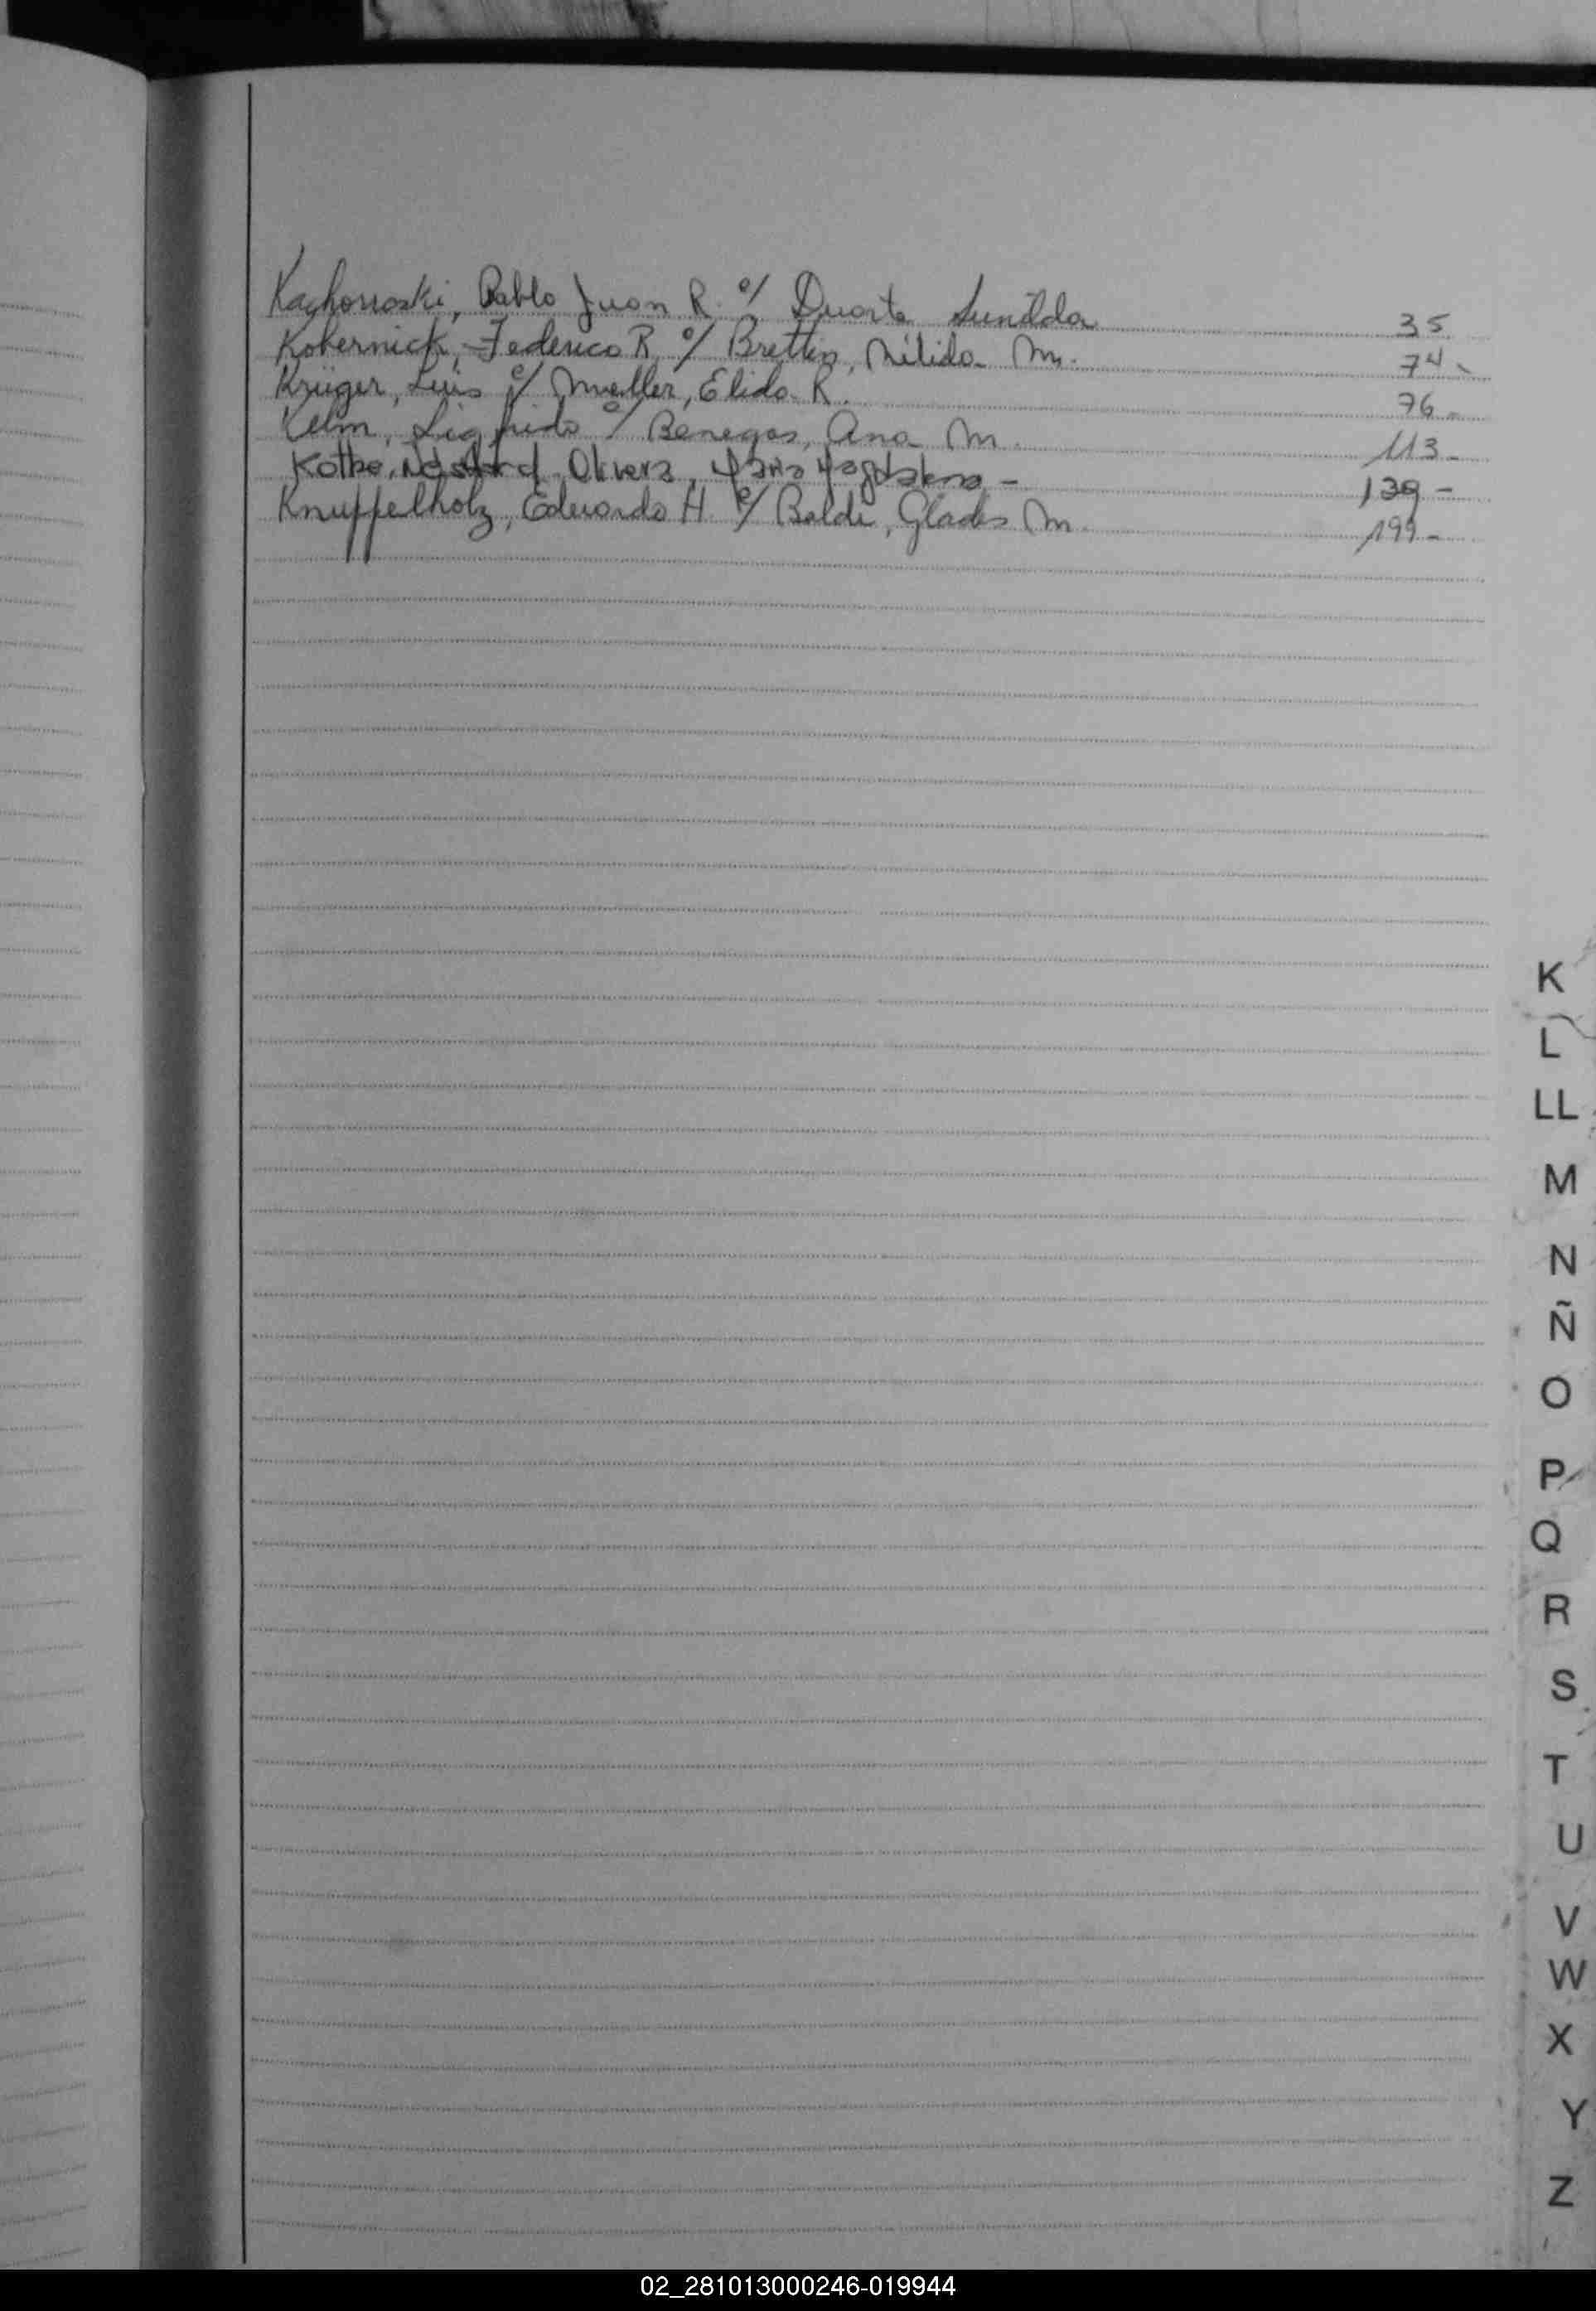 Kachorroski, Pablo Juan R. c/ Duarte 35
Kokernick, Federico R. c/ Brettin, Nélida M. 74-
Krüger, Luis c/ Mueller, Elida R. 76-
Kelm, Sigfrido c/ Benegas, Ana M. 113-
Kothe, Olivera, María Magdalena - 139-
Knuppelholz, Eduardo H. c/ Baldi, Glades M. 199-
K
L
LL
M
N
Ñ
O
P
Q
R
S
T
U
V
W
X
Y
Z
02_281013000246-019944